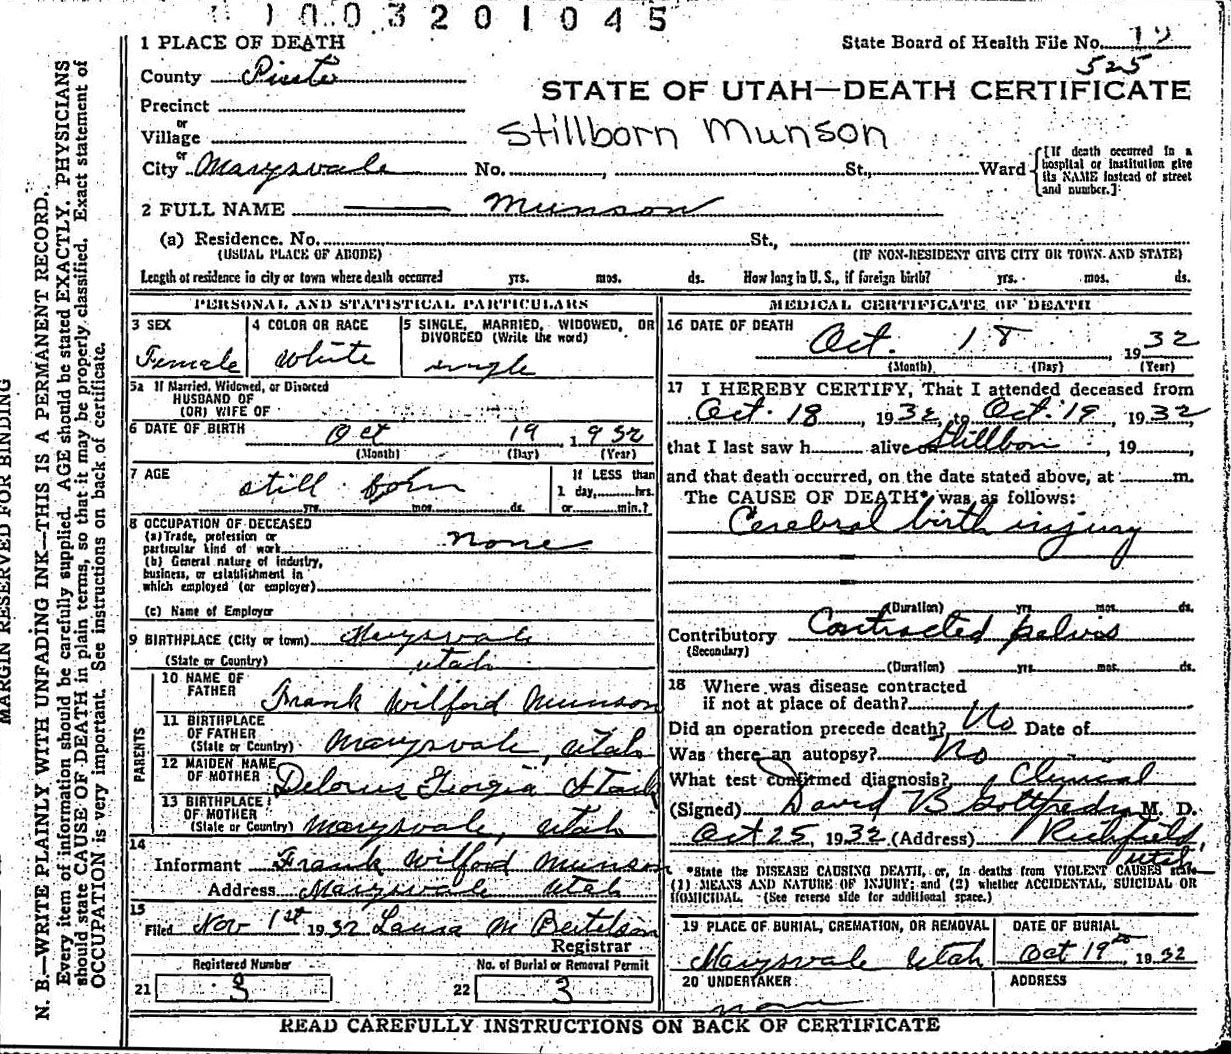 1003201045
1 PLACE OF DEATH
State Board of Health File No. 
525
County Piute
STATE OF UTAH—DEATH CERTIFICATE
Precinct
or
Village
Stillborn Munson
City or Marysvale No. , St., Ward
[If death occurred in a hospital or institution give its NAME instead of street and number.]
2 FULL NAME Munson
(a) Residence. No. St.,
(USUAL PLACE OF ABODE) (IF NON-RESIDENT GIVE CITY OR TOWN AND STATE)
Length of residence in city or town where death occurred yrs. mos. ds. How long in U. S., if foreign birth? yrs. mos. ds.
PERSONAL AND STATISTICAL PARTICULARS
3 SEX
Female
4 COLOR OR RACE
White
5 SINGLE, MARRIED, WIDOWED, OR DIVORCED (Write the word)
single
5a If Married, Widowed, or Divorced
HUSBAND OF
(OR) WIFE OF
6 DATE OF BIRTH Oct 19 1932
(Month) (Day) (Year)
7 AGE still born
yrs. mos. ds.
If LESS than
1 day, hrs.
or min.?
8 OCCUPATION OF DECEASED
(a) Trade, profession or
particular kind of work none
(b) General nature of industry,
business, or establishment in
which employed (or employer)
(c) Name of Employer
9 BIRTHPLACE (City or town) Marysvale
(State or Country) Utah
PARENTS
10 NAME OF
FATHER Frank Wilford Munson
11 BIRTHPLACE
OF FATHER
(State or Country) Marysvale, Utah
12 MAIDEN NAME
OF MOTHER Delorus Georgia Stark
13 BIRTHPLACE
OF MOTHER
(State or Country) Marysvale, Utah
14
Informant Frank Wilford Munson
Address Marysvale Utah
15
Filed Nov 1st 1932 Laura M Bertelson
Registrar
Registered Number
21 3
No. of Burial or Removal Permit
22 3
MEDICAL CERTIFICATE OF DEATH
16 DATE OF DEATH
Oct. 18, 1932
(Month) (Day) (Year)
17 I HEREBY CERTIFY, That I attended deceased from
Oct. 18, 1932 to Oct. 19, 1932
that I last saw h alive Stillborn, 19
and that death occurred, on the date stated above, at m.
The CAUSE OF DEATH* was as follows:
Cerebral birth injury
(Duration) yrs. mos. ds.
Contributory Contracted pelvis
(Secondary)
(Duration) yrs. mos. ds.
18 Where was disease contracted
if not at place of death?
Did an operation precede death? No Date of
Was there an autopsy? No
What test confirmed diagnosis? Clinical
(Signed) David B Gottfredson M. D.
Oct 25, 1932 (Address) Richfield,
Utah
*State the DISEASE CAUSING DEATH, or, in deaths from VIOLENT CAUSES state
(1) MEANS AND NATURE OF INJURY; and (2) whether ACCIDENTAL, SUICIDAL OR
HOMICIDAL. (See reverse side for additional space.)
19 PLACE OF BURIAL, CREMATION, OR REMOVAL
Marysvale Utah
DATE OF BURIAL
Oct 19th, 1932
20 UNDERTAKER
none
ADDRESS
READ CAREFULLY INSTRUCTIONS ON BACK OF CERTIFICATE
MARGIN RESERVED FOR BINDING
N. B.—WRITE PLAINLY WITH UNFADING INK—THIS IS A PERMANENT RECORD.
Every item of information should be carefully supplied. AGE should be stated EXACTLY. PHYSICIANS
should state CAUSE OF DEATH in plain terms, so that it may be properly classified. Exact statement of
OCCUPATION is very important. See instructions on back of certificate.